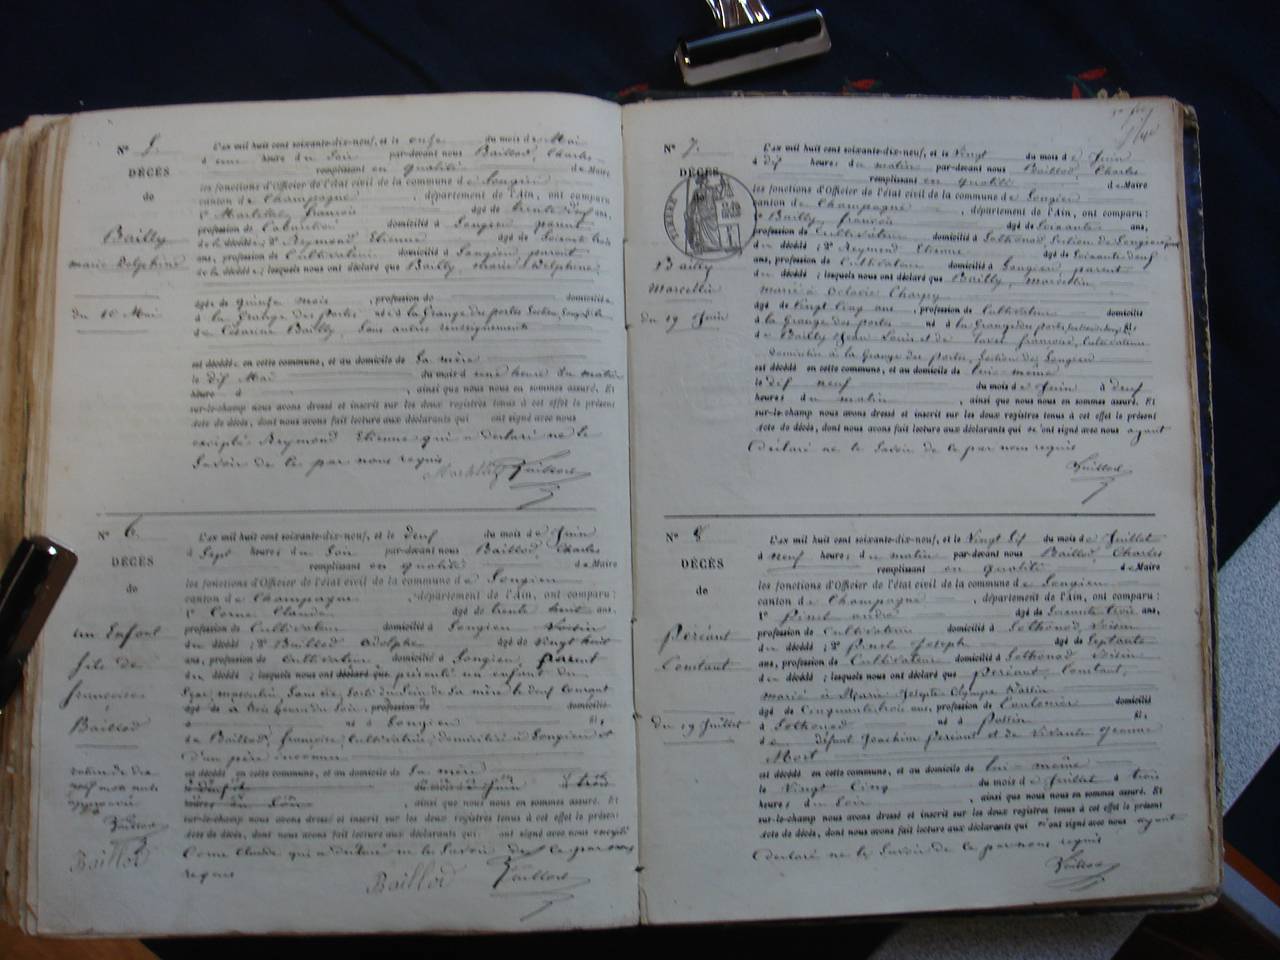 N° 5.
DÉCÈS
de
Bailly
marie Delphine
du 10 Mai
L'an mil huit cent soixante-dix-neuf, et le onze du mois de Mai
à une heure du soir par-devant nous Baillod, Charles
remplissant en qualité de Maire
les fonctions d'Officier de l'état civil de la commune de Songieu
canton de Champagne, département de l'Ain, ont comparu:
1° françois âgé de trente ans,
profession de domicilié à Songieu parent
de la décédée; 2° Reymond Etienne âgé de Soixante trois
ans, profession de Cultivateur domicilié à Songieu parent
de la décédée; lesquels nous ont déclaré que Bailly, marie Delphine
âgée de quinze mois, profession de domiciliée
à la Grange des portes née à la Grange des portes Section
de Bailly, Sans autres renseignements
est décédée en cette commune, et au domicile de Sa mère
le dix Mai du mois d une heure du matin
heure à, ainsi que nous nous en sommes assuré. Et
sur-le-champ nous avons dressé et inscrit sur les deux registres tenus à cet effet le présent
acte de décès, dont nous avons fait lecture aux déclarants qui ont signé avec nous
excepté Reymond Etienne qui a déclaré ne le
Savoir de ce par nous requis
Baillod
N° 6
DÉCÈS
de
un Enfant
fils de
françoise
Baillod
Baillod
Baillod
L'an mil huit cent soixante-dix-neuf, et le deux du mois de Juin
à Sept heures du Soir par-devant nous Baillod, Charles
remplissant en qualité de Maire
les fonctions d'Officier de l'état civil de la commune de Songieu
canton de Champagne, département de l'Ain, ont comparu:
1° Corne Claude âgé de trente huit ans,
profession de Cultivateur domicilié à Songieu Voisin
du décédé; 2° Baillod Adolphe âgé de vingt huit
ans, profession de Cultivateur domicilié à Songieu, parent
du décédé; lesquels nous ont déclaré que présenté un enfant du
Sexe masculin, Sans vie, Sorti du Sein de Sa mère le deux Courant
âgé de à trois heures du Soir, profession de domicilié
à né à Songieu fils
de Baillod, françoise, Cultivatrice, domiciliée à Songieu et
D'un père inconnu
est décédé en cette commune, et au domicile de Sa mère
le deux du mois de Juin à trois
heures du Soir, ainsi que nous nous en sommes assuré. Et
sur-le-champ nous avons dressé et inscrit sur les deux registres tenus à cet effet le présent
acte de décès, dont nous avons fait lecture aux déclarants qui ont signé avec nous excepté
Corne Claude qui a déclaré ne le Savoir de ce par nous
requis
Baillod Baillod
N° 7.
DÉCÈS
de
Bailly
Marcellin
du 19 Juin
L'an mil huit cent soixante-dix-neuf, et le Vingt du mois de Juin
à dix heures du matin par-devant nous Baillod, Charles
remplissant en qualité de Maire
les fonctions d'Officier de l'état civil de la commune de Songieu
canton de Champagne, département de l'Ain, ont comparu:
1° Bailly françois âgé de Soixante ans,
profession de Cultivateur domicilié à Sothonod, Section de Songieu
du décédé; 2° Reymond Etienne âgé de Soixante deux
ans, profession de Cultivateur domicilié à Songieu parent
du décédé; lesquels nous ont déclaré que Bailly, Marcellin,
marié à Octavie Charpy
âgé de Vingt Cinq ans, profession de Cultivateur domicilié
à la Grange des portes né à la Grange des portes fils
de Bailly Jean Louis et de françoise, Cultivateurs
domiciliés à la Grange des portes, Section de Songieu
est décédé en cette commune, et au domicile de lui-même
le dix neuf du mois de Juin à deux
heures du matin, ainsi que nous nous en sommes assuré. Et
sur-le-champ nous avons dressé et inscrit sur les deux registres tenus à cet effet le présent
acte de décès, dont nous avons fait lecture aux déclarants qui n'ont signé avec nous ayant
déclaré ne le Savoir de ce par nous requis
Baillod
N° 8
DÉCÈS
de
Périant
Constant
du 29 Juillet
L'an mil huit cent soixante-dix-neuf, et le Vingt Six du mois de Juillet
à neuf heures du matin par-devant nous Baillod, Charles
remplissant en qualité de Maire
les fonctions d'Officier de l'état civil de la commune de Songieu
canton de Champagne, département de l'Ain, ont comparu:
1° Pinet andré âgé de Soixante trois ans,
profession de Cultivateur domicilié à Sothonod, Voisin
du décédé; 2° Pinet Joseph âgé de Septante
ans, profession de Cultivateur domicilié à Sothonod Voisin
du décédé; lesquels nous ont déclaré que Périant, Constant,
marié à Marie Josephte Olympe
âgé de Cinquante trois ans, profession de Cantonier domicilié
à Sothonod né à Passin fils
de défunt Joachim Périant et de Vivante Jeanne
Mort
est décédé en cette commune, et au domicile de lui-même
le Vingt Cinq du mois de Juillet à trois
heures du Soir, ainsi que nous nous en sommes assuré. Et
sur-le-champ nous avons dressé et inscrit sur les deux registres tenus à cet effet le présent
acte de décès, dont nous avons fait lecture aux déclarants qui n'ont signé avec nous ayant
déclaré ne le Savoir de ce par nous requis
Baillod